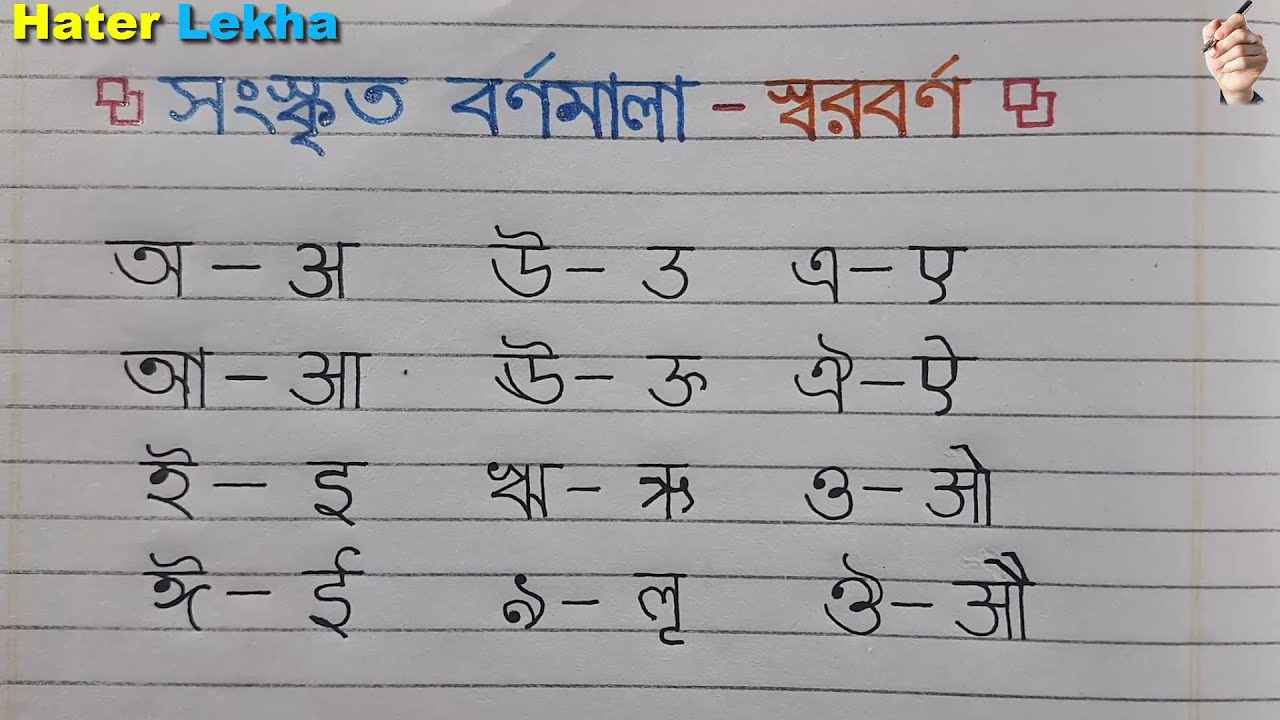 Hater Lekha
সংস্কৃত বর্ণমালা - স্বরবর্ণ
অ – अ উ – उ এ – ए
আ – आ ঊ – ऊ ঐ – ऐ
ই – इ ঋ – ऋ ও – ओ
ঈ – ई ঌ – लृ ঔ – औ